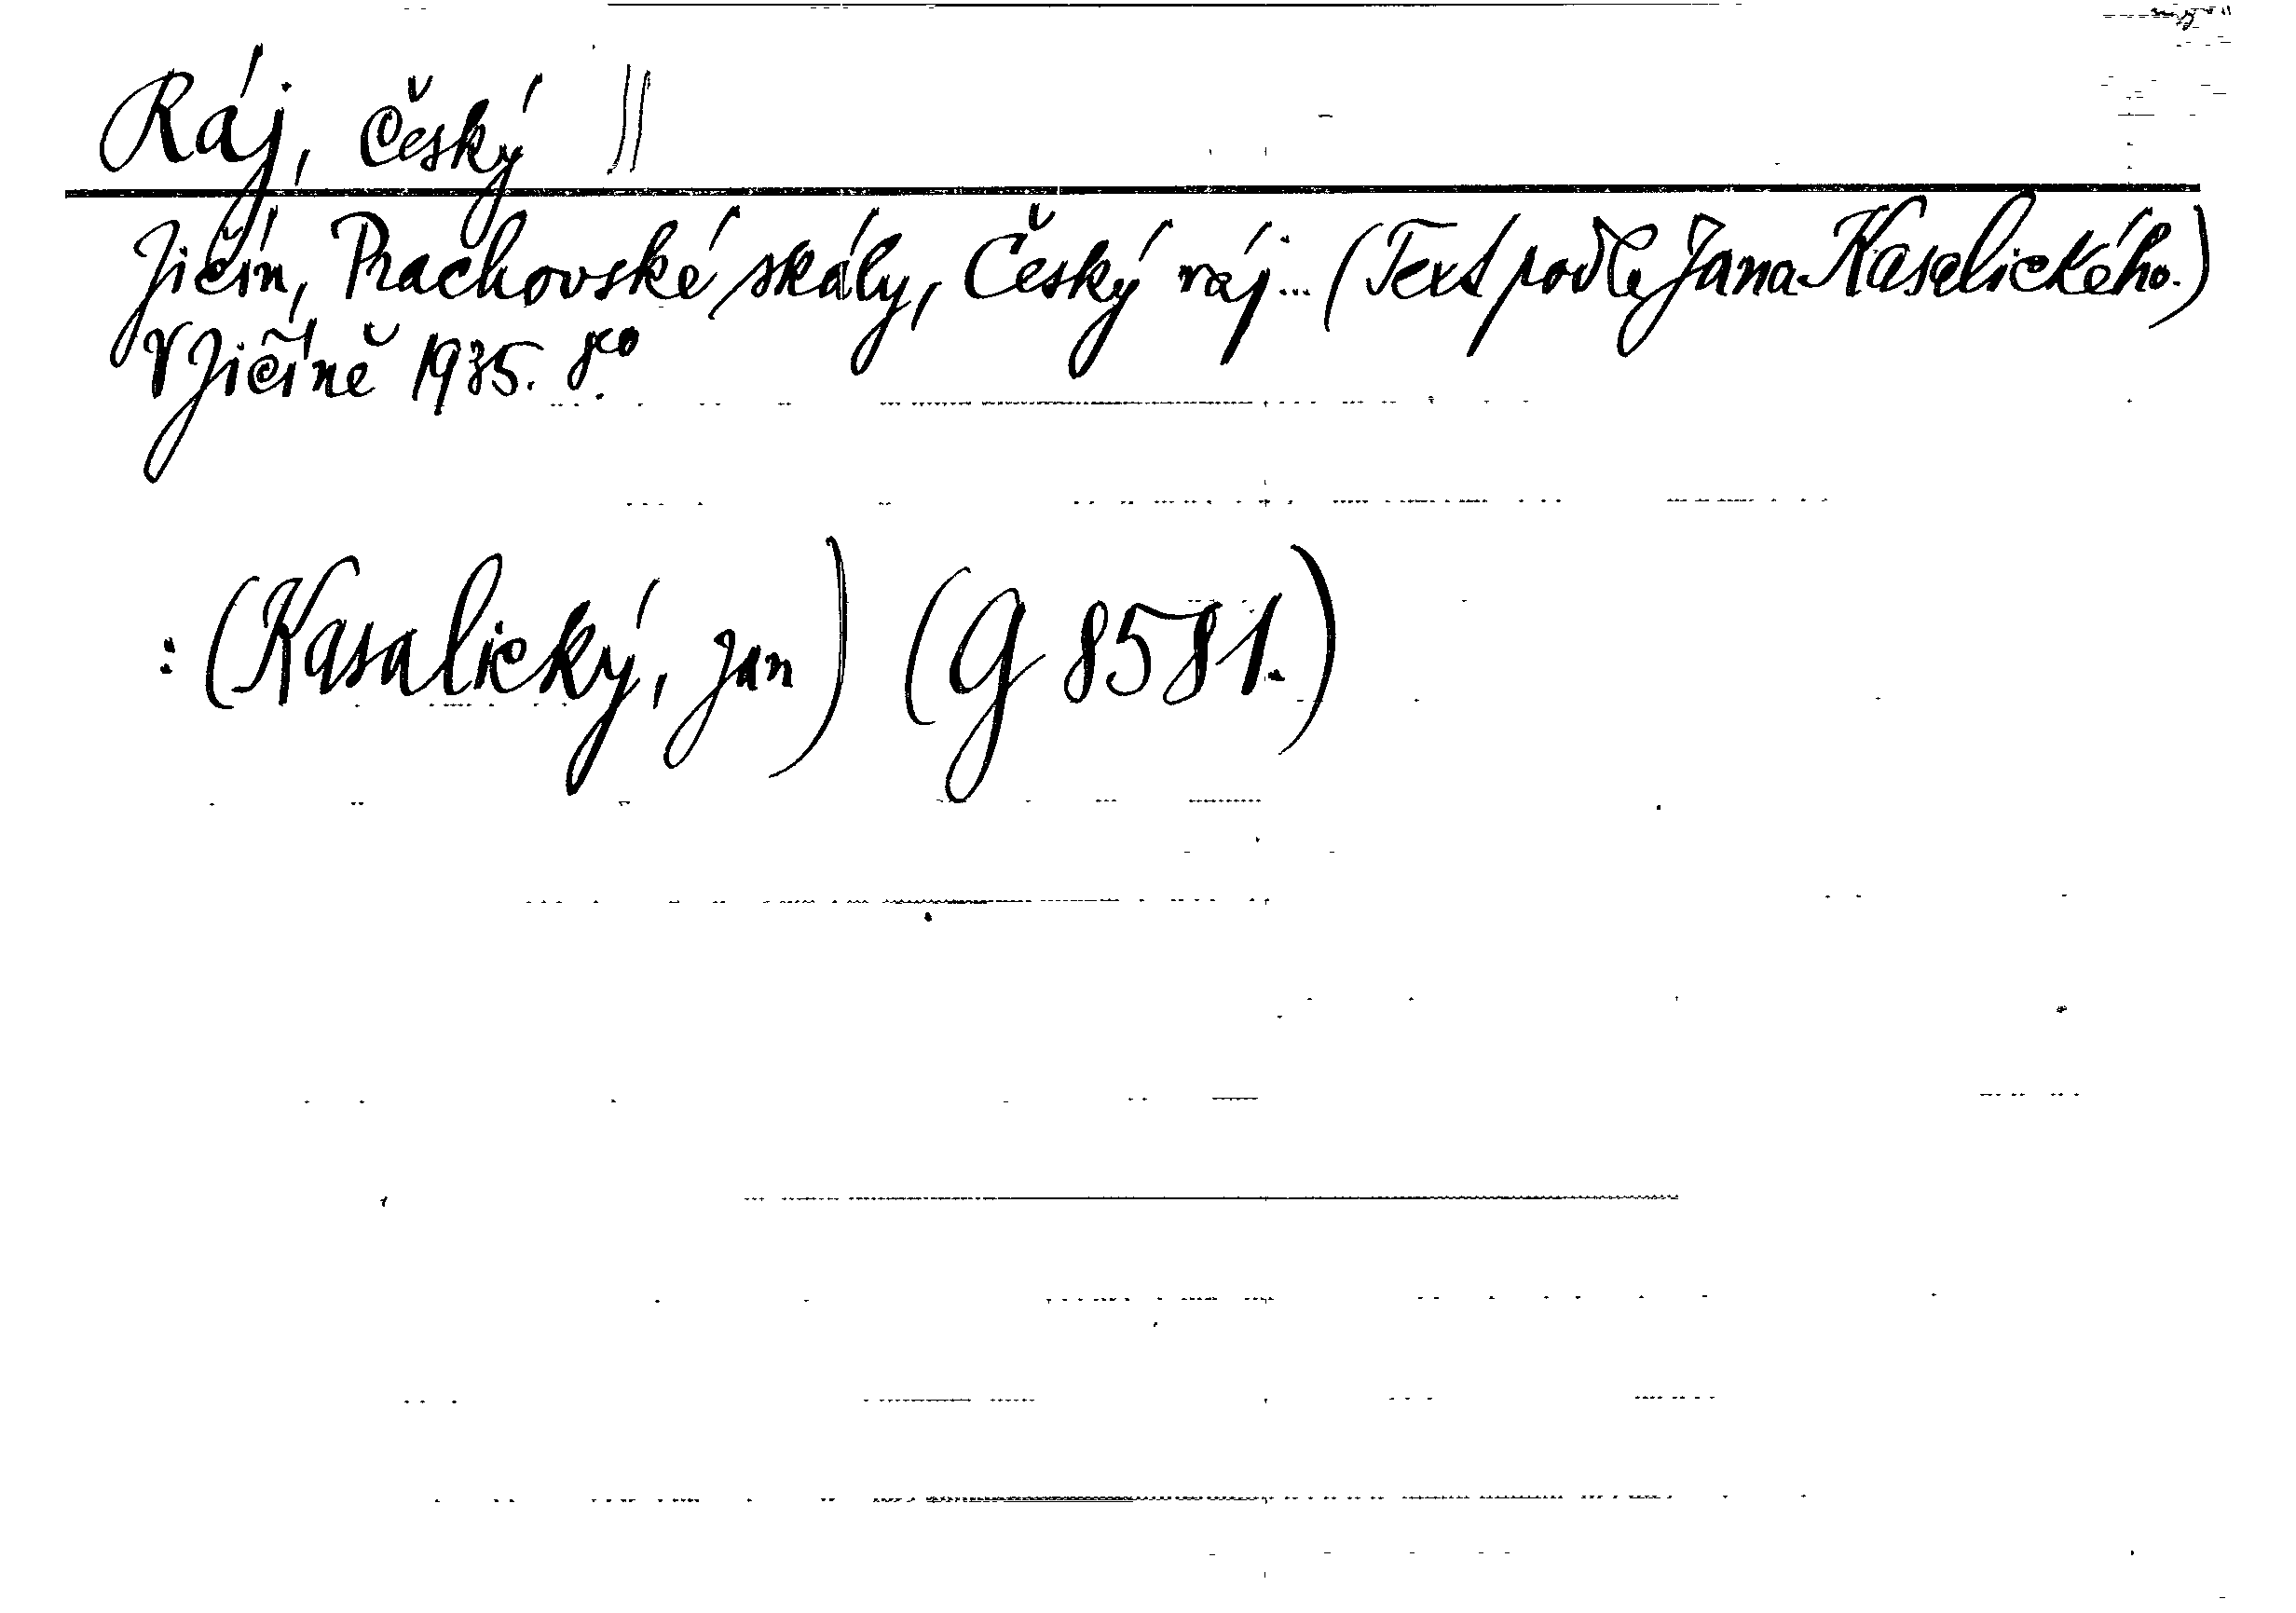 Ráj, Český ||
Jičín, Prachovské skály, Český ráj... (Text podle Jana Kasalického.)
V Jičíně 1935. 8co.
: (Kasalický, Jan) (G 8581.)